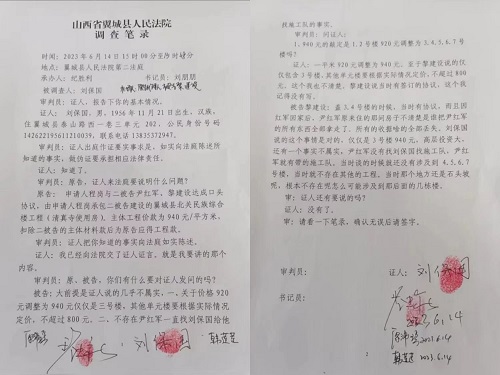 山西省翼城县人民法院
调 查 笔 录
时间：2023 年 6 月 14 日 15 时 00 分至 时 分
地点：翼城县人民法院第二法庭
办案人：纪胜利 书记员：刘朋朋
被调查人：刘保国
审判员：证人，报告下你的基本情况。
证人：刘保国，男，1956 年 11 月 21 日出生，汉族，
住翼城县泰山路西一巷三单元 202，公民身份号码
142622195611210039，联系电话 13835372947。
审判员：证人出庭作证要实事求是，如实向法庭陈述所
知道的事实，做伪证要承担相应法律责任。
证人：知道。
审判员：原告，证人来法庭要说明什么问题？
原告：申请人程岗与二被告尹红军、黎建设达成口头
协议，由申请人程岗承包二被告建设的翼城县北关民族综合
楼工程（清真寺使用房）。主体工程价款为 940 元/平方米，
扣除二被告的主体材料款后为原告应得工程款。
审判员：证人把你知道的事实向法庭如实陈述。
证人：我已经向法院交了证人证言，就是我要讲的那个
内容。
审判员：原、被告，你们有什么要对证人发问的吗？
被告：大前提是证人说的几乎不属实，一关于价格 920
元调整为 940 仅仅是三号楼，其他单元楼要根据实际情况
定价，不超过 800 元。二、不存在尹红军一直找刘保国给他
刘保国
找施工队的事实。
审判员：问证人：
1.940 元的敲定是 1.2 号楼 920 元调整为 3,4,5,6,7 号
楼吗？
证人：一平米 920 元调整为 940 元，至于黎建设说的仅
仅包含 3 号楼，其他单元楼要根据实际情况定价，不超过 800
元，这个我也不清楚。黎建设说当时有签订的协议，这个我
记得没有写。
被告黎建设：盖 3.4 号楼的时候，当时有协议，而且因
红军回家后，尹红军原来住的那间房子不清楚是谁把尹红军
的所有东西全部拿走了。所有的收据啥的全部丢失，刘保国
说的这个事情是对的，仅仅是 3 号楼 940 元，高层投资大。
还有一个事实不属实，尹红军没有找刘保国找施工队，尹红
军就有带的施工队。当时谈的时候就还没有涉及到 4,5,6,7
号楼，当时就不存在其他的工程。当时那个地方还是石头坡
呢，根本不存在兜怎么可能涉及到那后面的几栋楼。
审：证人还有要说的吗？
证人：没有了。
审：请看一下笔录，确认无误后请签字。
审判员： 证人：刘保国
书记员：
2023.6.14
2023.6.14
2023.6.14